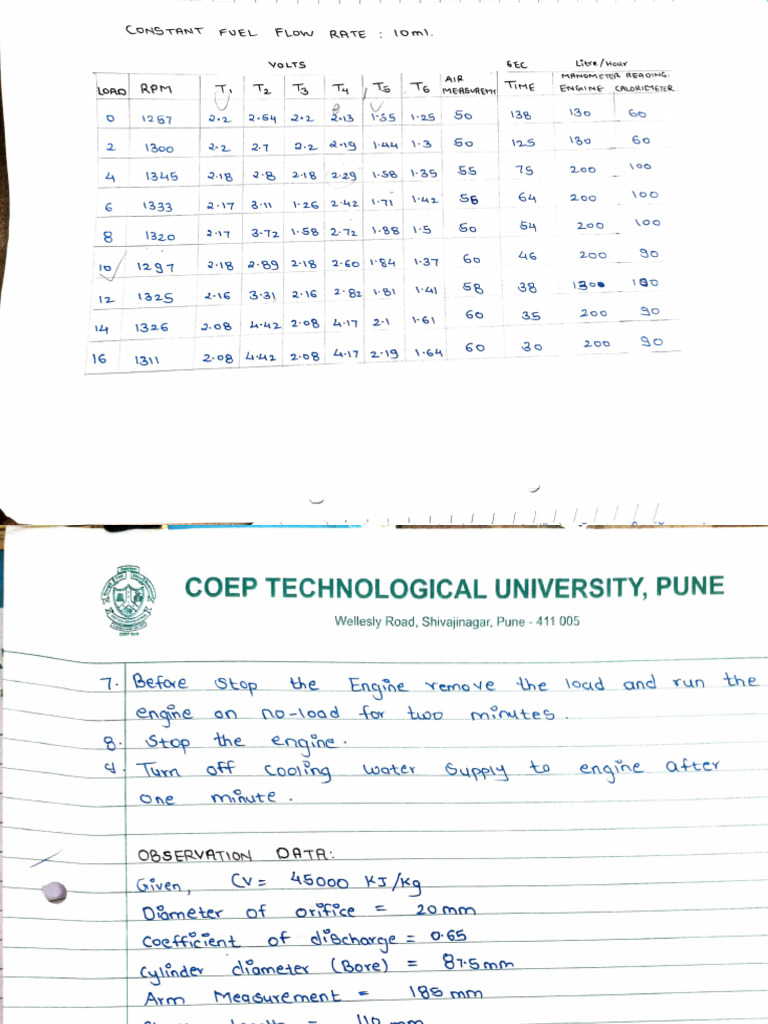 CONSTANT FUEL FLOW RATE : 10ml.
VOLTS SEC Litre/Hour
LOAD RPM T1 T2 T3 T4 T5 T6 AIR MEASUREMT TIME MANOMETER READING. ENGINE CALORIMETER
0 1257 2.2 2.64 2.2 2.13 1.35 1.25 50 138 130 60
2 1300 2.2 2.7 2.2 2.19 1.44 1.3 50 125 130 60
4 1345 2.18 2.8 2.18 2.29 1.58 1.35 55 75 200 100
6 1333 2.17 3.11 1.26 2.42 1.71 1.42 56 64 200 100
8 1320 2.17 3.72 1.58 2.72 1.88 1.5 50 54 200 100
10 1297 2.18 2.89 2.18 2.60 1.84 1.37 60 46 200 90
12 1325 2.16 3.31 2.16 2.82 1.81 1.41 58 38
14 1326 2.08 4.42 2.08 4.17 2.1 1.61 60 35 200 90
16 1311 2.08 4.42 2.08 4.17 2.19 1.64 60 30 200 90
COEP TECHNOLOGICAL UNIVERSITY, PUNE
Wellesly Road, Shivajinagar, Pune - 411 005
7. Before stop the Engine remove the load and run the
engine on no-load for two minutes.
8. Stop the engine.
9. Turn off cooling water supply to engine after
one minute.
OBSERVATION DATA:
Given, CV = 45000 KJ/kg
Diameter of orifice = 20 mm
Coefficient of discharge = 0.65
Cylinder diameter (Bore) = 87.5mm
Arm Measurement = 185 mm
= 110 mm